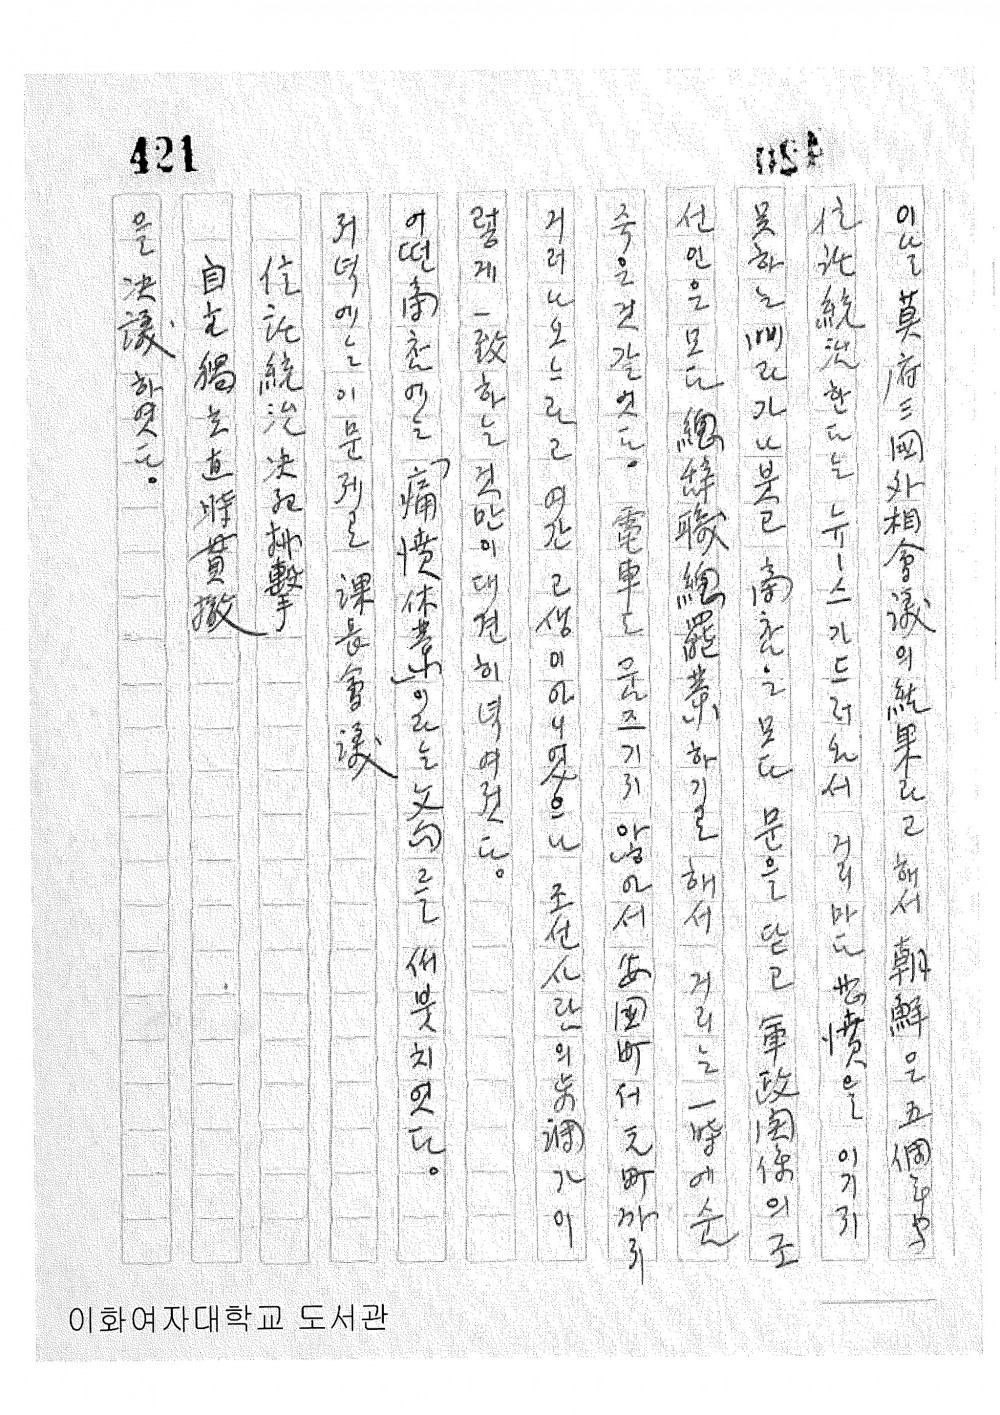 421
이날 莫府三國外相會議의 結果라고 해서 朝鮮은 五個年
信託統治한다는 뉴ー스가드러와서 거리마다 悲憤을 이기지
못하는 삐라가나붓고 商店은 모다 문을 닫고 軍政関係의 조
선인은 모다 總辭職 總罷業하기로 해서 거리는 一時에 숨
죽은것갈엇다。 電車도 움즈기지 않아서 安国町서 元町까지
거러나오느라고 여간 고생이아니엿으나 조선사람의 步調가 이
렇게 一致하는 것만이 대견히 녁여젓다。
어떤商店에는 「痛憤休業」이라는文句를 써붓치엿다。
저녁에는 이문제로 課長會議
信託統治 決死排擊
自主獨立 直時貫撤
을 決議하엿다。
이화여자대학교 도서관